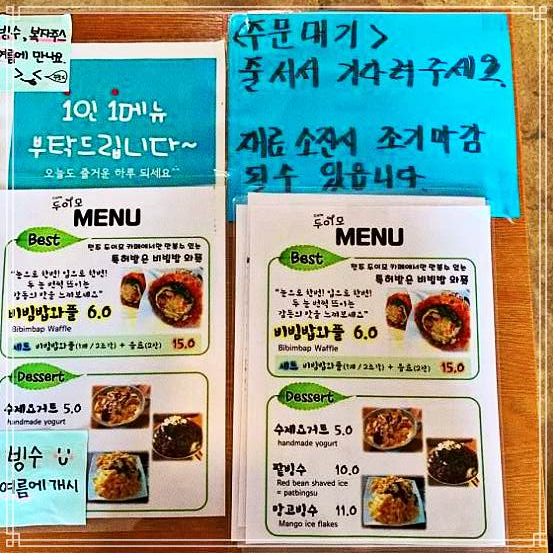 빙수, 복자주스
여름에 만나요.
1인 1메뉴
부탁드립니다~
오늘도 즐거운 하루 되세요^^
<주문대기>
줄서서 기다려주세요.
재료 소진시 조기마감
될수 있읍니다.
cafe
두이모
MENU
Best
특허받은 비빔밥 와플
"눈으로 한번! 입으로 한번!
두 눈 번쩍 뜨이는
감동의 맛을 느껴보세요"
비빔밥와플 6.0
Bibimbap Waffle
세트 비빔밥와플(1개/2조각) + 음료(2잔) 15.0
Dessert
수제요거트 5.0
handmade yogurt
빙수
여름에 개시
cafe
두이모
MENU
Best
특허받은 비빔밥 와플
"눈으로 한번! 입으로 한번!
두 눈 번쩍 뜨이는
감동의 맛을 느껴보세요"
비빔밥와플 6.0
Bibimbap Waffle
세트 비빔밥와플(1개/2조각) + 음료(2잔) 15.0
Dessert
수제요거트 5.0
handmade yogurt
팥빙수 10.0
Red bean shaved ice
= patbingsu
망고빙수 11.0
Mango ice flakes